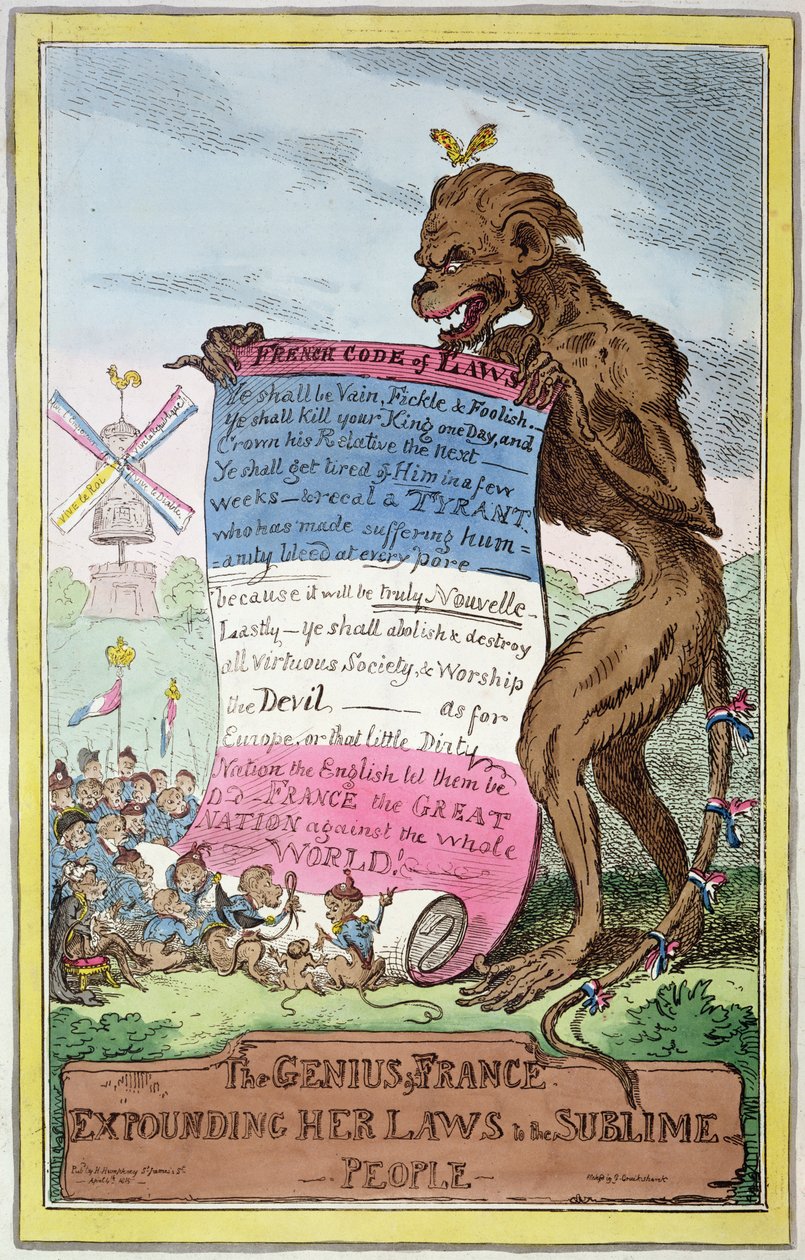 FRENCH CODE of LAWS
Ye shall be Vain, Fickle & Foolish.
Ye shall kill your King one Day, and
Crown his Relative the next
Ye shall get tired of Him in a few
weeks — & recal a TYRANT
who has made suffering hum=
=anity bleed at every pore
because it will be truly Nouvelle
Lastly — ye shall abolish & destroy
all virtuous Society, & Worship
the Devil — as for
Europe, or that little Dirty
Nation the English let them be
D—d — FRANCE the GREAT
NATION against the whole
WORLD!
Vive la republique
VIVE le ROI
Vive le Diable
The GENIUS of FRANCE
EXPOUNDING HER LAWS to the SUBLIME
PEOPLE
Pubd by H. Humphrey St James's St
— April 4th 1815 —
Etchd by G. Cruikshank